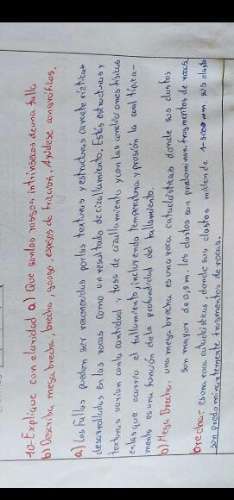 10- Explique con claridad a) Que son los rasgos intrinsecos de una falla
b) Describa mega brecha, brecha, gouge, espejos de friccion,
a) Las fallas pueden ser reconocidas por las texturas y estructuras caracteristicas
desarrolladas en las rocas como un resultado de cizallamiento. Estas estructuras y
texturas varian con la cantidad y tasa de cizallamiento y con las condiciones fisicas
en las que ocurrio el fallamiento, incluyendo temperatura y presión la cual tipica-
mente es una funcion de la profundidad del fallamiento.
b) Mega Brecha: una mega brecha es una roca cataclásticas donde sus clastos
son mayor de 0,5 m. los clastos son predominan fragmentos de rocas.
brecha: es una roca cataclástica, donde sus clastos miden de 1-500 mm sus clasto
son predominantemente fragmentos de rocas.